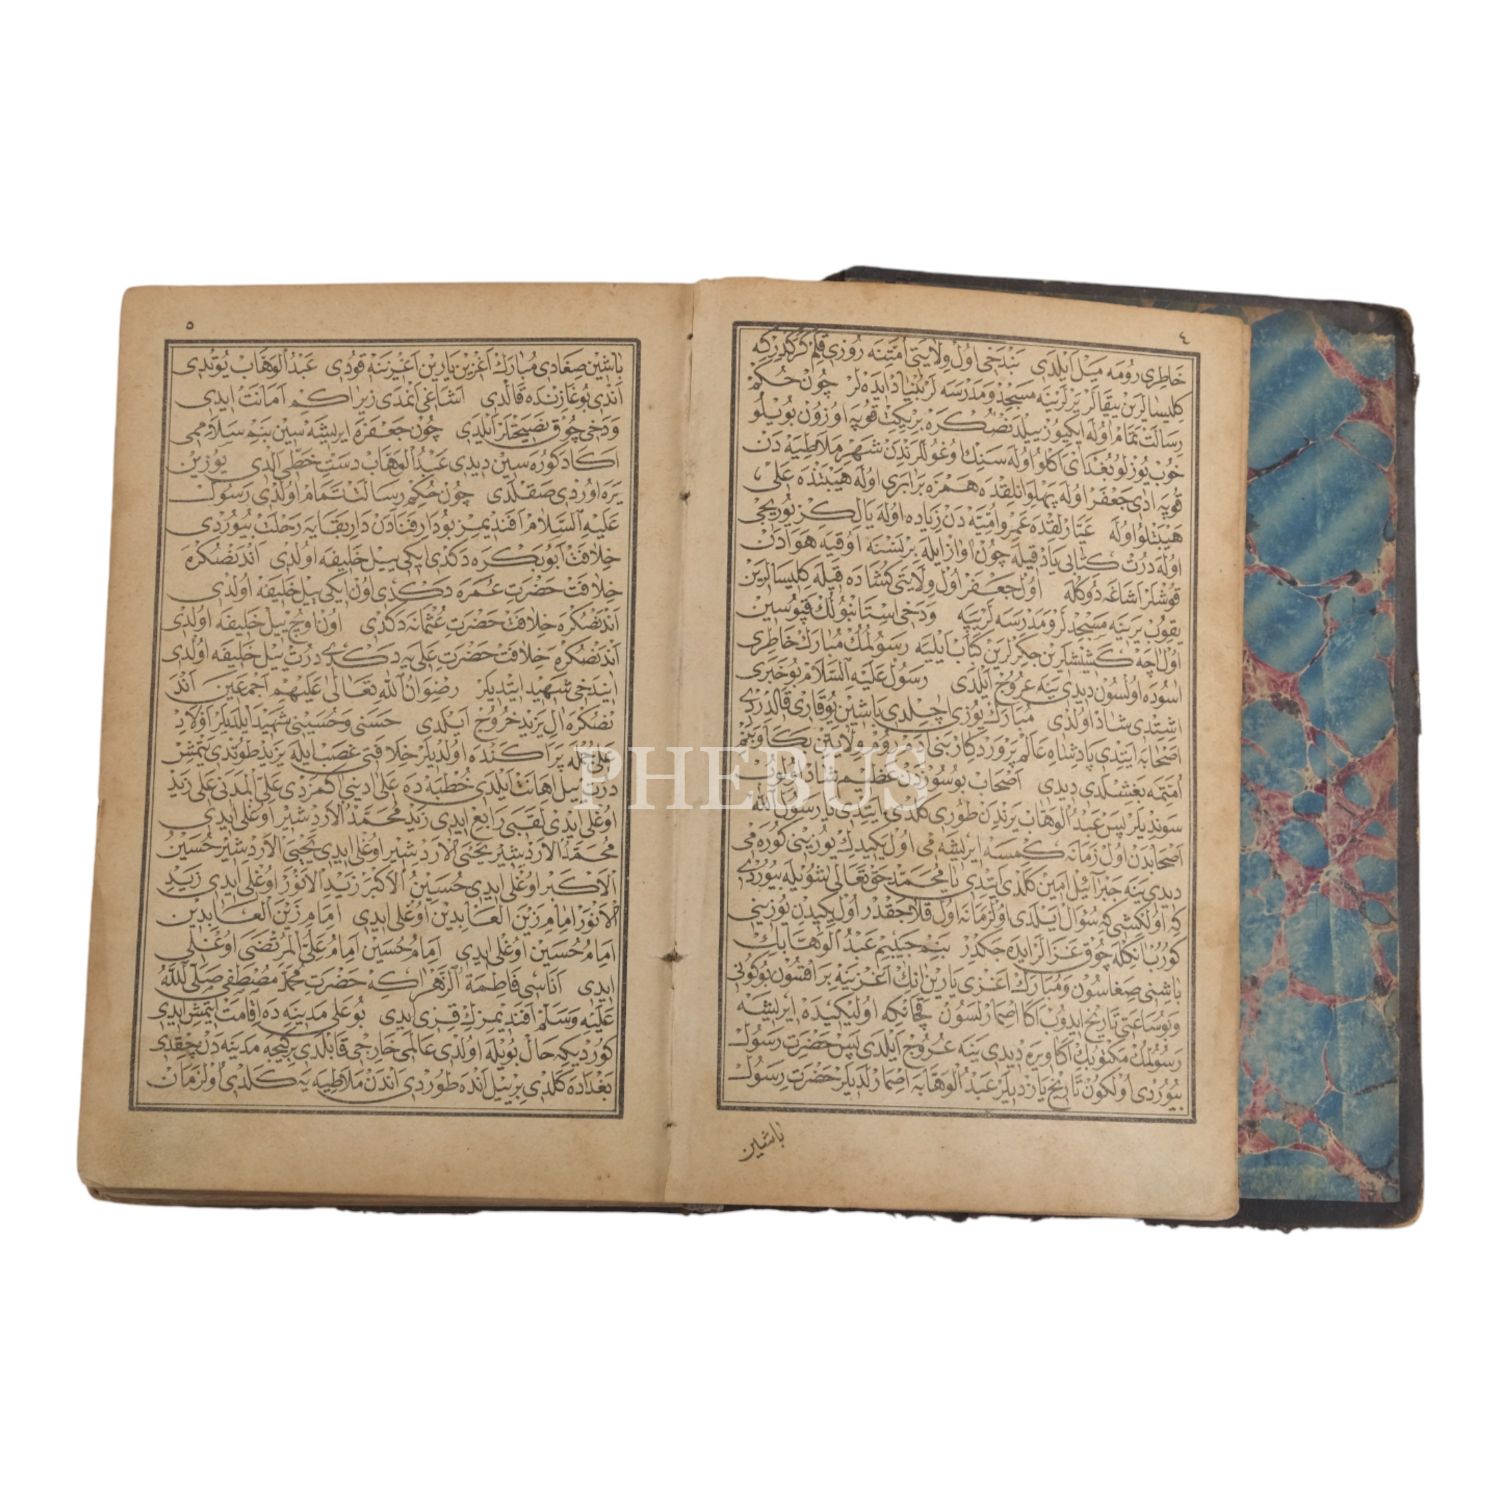 ٤
خاطری رومه میل ایلدی بندخی اول ولایتی امتنه روزی قلم کرکدرکه
کلیسالرین بیقالر یرلرینه مسجد و مدرسه لر بنیاد ایده لر چون حکم
رسالت تمام اوله ایکیوز ییلدنصکره بر یکت قوپه اوزون بویلو
خوب یوزلو بغدای اکلو اوله سنك اوغوللرندن شهر ملاطیه دن
قوپه ادی جعفر اوله پهلوانلقده همزه برابری اوله هیبتده علی
هیبتلو اوله عیارلقده عمرو امیه دن زیاده اوله یالکز یوریجی
اوله درت کتابی یاد قیله چون اواز ایله بر نسنه اوقیه هوادن
قوشلر اشاغه دوکله اول جعفر اول ولایتی کشاده قیله کلیسالرین
یقوب یرینه مسجدلر و مدرسه لر یپه ودخی استانبولك قپوسین
اول اچه کشیشلرین جکرلرین کباب ایلیه رسولك مبارك خاطری
اسوده اولسون دیدی ینه عروج ایلدی رسول علیه السلام بو خبری
اشتدی شاد اولدی مبارك یوزی اچلدی باشین یوقاری قالدردی
اصحابه ایتدی پادشاه عالم پروردکار بنی روم ولایتین بکا وبنم
امتمه بغشلدی دیدی اصحاب بو سوزدن عظیم شاد اولوب
سوندیلر پس عبدالوهاب یرندن طوری کلدی ایتدی یا رسول الله
اصحابدن اول زمانه کمسه ایریشه می اول یکیدك یوزینی کوره می
دیدی ینه جبرائیل امین کلدی ایتدی یا محمد حق تعالی شویله بیوردی
که اولکشی که سؤال ایلدی اول زمانه اول قلاجقدر اول یکیدن یوزینی
کوروب انکله چوق غزالر ایده جکدر بنم حبیبم عبدالوهابك
باشنی صغاسون و مبارك اغزی یارین انك اغزینه براقسون بوکونی
وبو ساعتی تاریخ ایدوب اکا اصمارلسون قچانکه اول یکیده ایریشه
رسولك مکتوبك اکا ویره دیدی ینه عروج ایلدی پس حضرت رسول
بیوردی اولکون تاریخ یازدیلر عبدالوهابه اصمارلدیلر حضرت رسول
باشین
٥
باشین صغادی مبارك اغزین یارین اغزینه قودی عبدالوهاب یوتدی
اندی بوغازنده قالدی اشاغی انمدی زیرا کم امانت ایدی
ودخی چوق نصیحتلر ایلدی چون جعفره ایریشه سین بنم سلاممی
اکا دکوره سین دیدی عبدالوهاب دست خطی الدی یوزین
یره اوردی صقلدی چون حکم رسالت تمام اولدی رسول
علیه السلام افندیمز بو دار فنادن دار بقایه رحلت بیوردی
خلافت ابوبکره دکدی ایکی ییل خلیفه اولدی اندنصکره
خلافت حضرت عمره دکدی اون ایکی ییل خلیفه اولدی
اندنصکره خلافت حضرت عثمانه دکدی اون اوچ ییل خلیفه اولدی
اندنصکره خلافت حضرت علی یه دکدی درت ییل خلیفه اولدی
انیدخی شهید ایتدیلر رضوان الله تعالی علیهم اجمعین اند
نصکره ال یزید خروج ایلدی حسنی و حسینی شهید ایلدیلر اولاد
علی جمله پراکنده اولدیلر خلافتی غصب ایله یزید طوتدی یتمش
درت ییل اهانت ایلدی خطبه ده علی دینی کمزدی علی المدنی علی زید
اوغلی ایدی لقبی رابع ایدی زید محمد الاردشیر اوغلی ایدی
محمد الاردشیر یحیی الاردشیر اوغلی ایدی یحیی الاردشیر حسین
الاکبر اوغلی ایدی حسین الاکبر زید الانور اوغلی ایدی زید
الانور امام زین العابدین اوغلی ایدی امام زین العابدین
امام حسین اوغلی ایدی امام حسین امام علی المرتضی اوغلی
ایدی اناسی فاطمة الزهرا که حضرت محمد مصطفی صلی الله
علیه وسلم افندیمزك قزی ایدی بو علی مدینه ده اقامت ایتمش ایدی
کوردیکه حال بویله اولدی عالمی خارجی قابلدی بر کیجه مدینه دن چقدی
بغداده کلدی بر ییل انده طوردی اندن ملاطیه یه کلدی اول زمان
PHEBUS